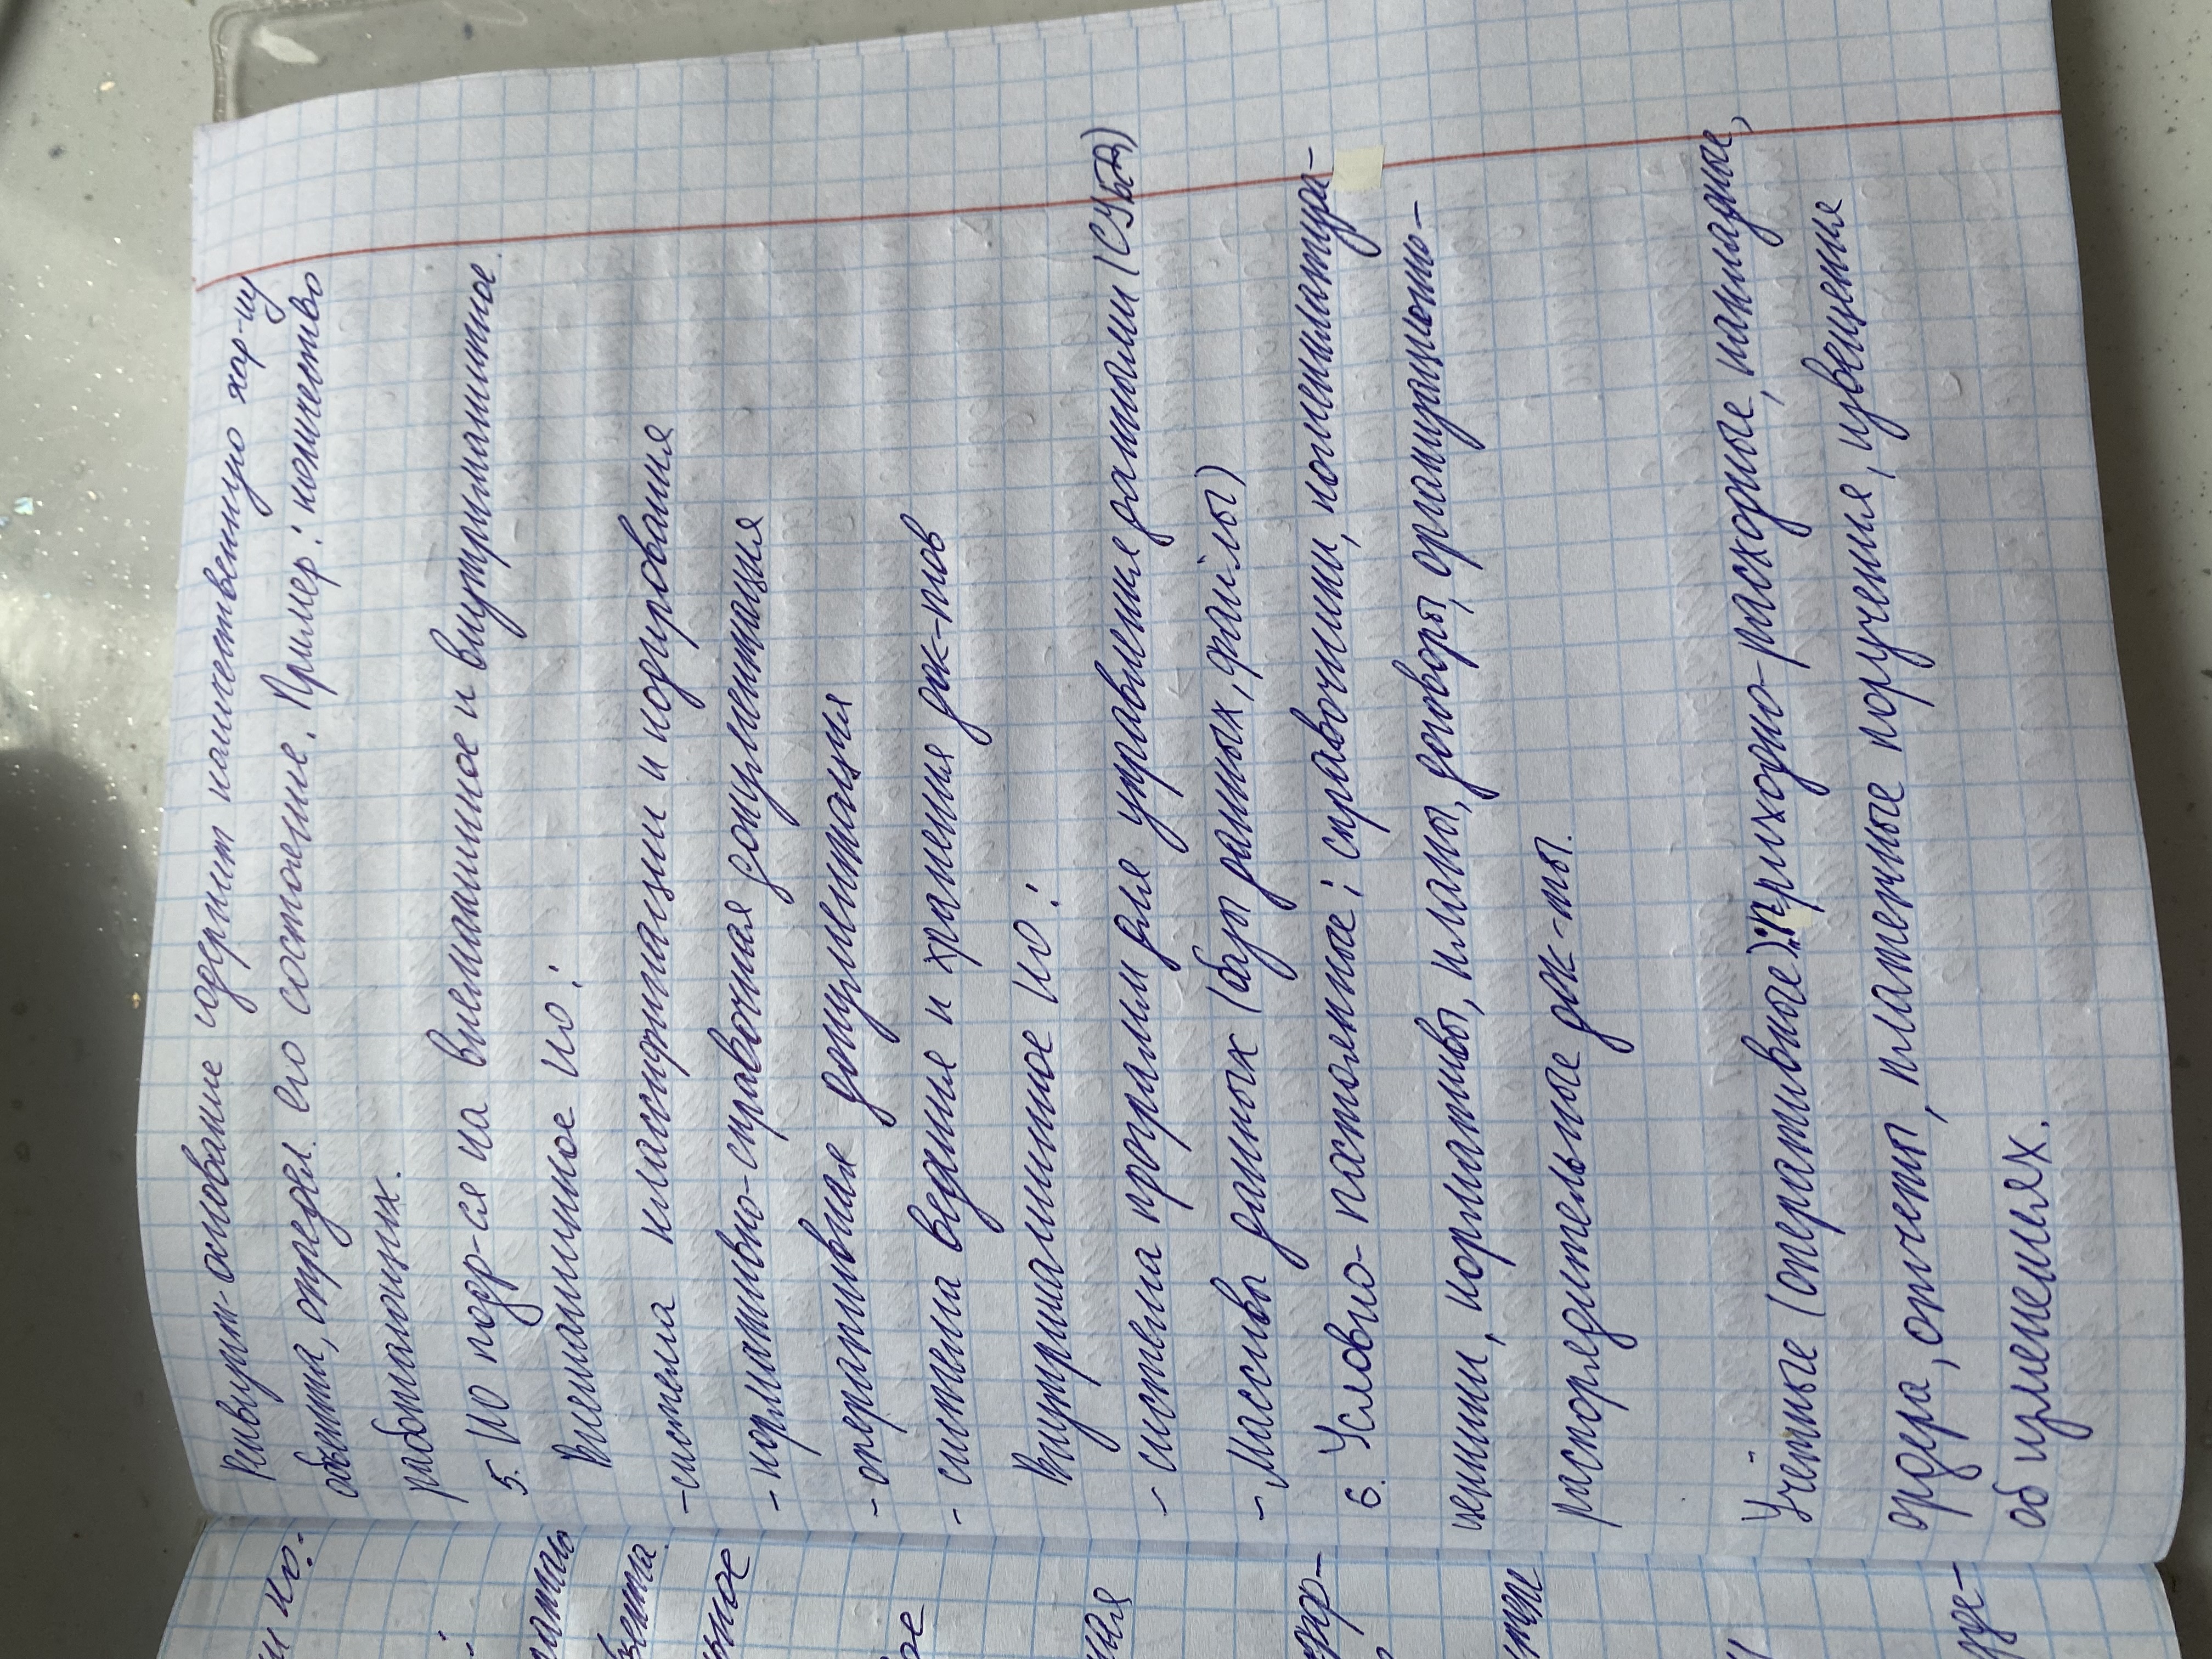 Реквизит-основание содержит количественную хар-ку
объекта, определ. его состояние. Пример: количество
работающих.
5. ИО подр-ся на внемашинное и внутримашинное.
Внемашинное ИО:
-система классификации и кодирования
- нормативно-справочная документация
- оперативная документация
- система ведения и хранения док-тов
Внутримашинное ИО:
- система программ для управления данными (СУБД)
- Массивы данных (базы данных, файлы)
6. Условно-постоянные: справочники, номенклатура-
ценники, нормативы, планы, договоры, организационно-
распорядительные док-ты.
Учётные (оперативные): приходно-расходные, накладные,
ордера, отчеты, платежные поручения, извещения
об изменениях.
ии ИО:
бъекта.
ная